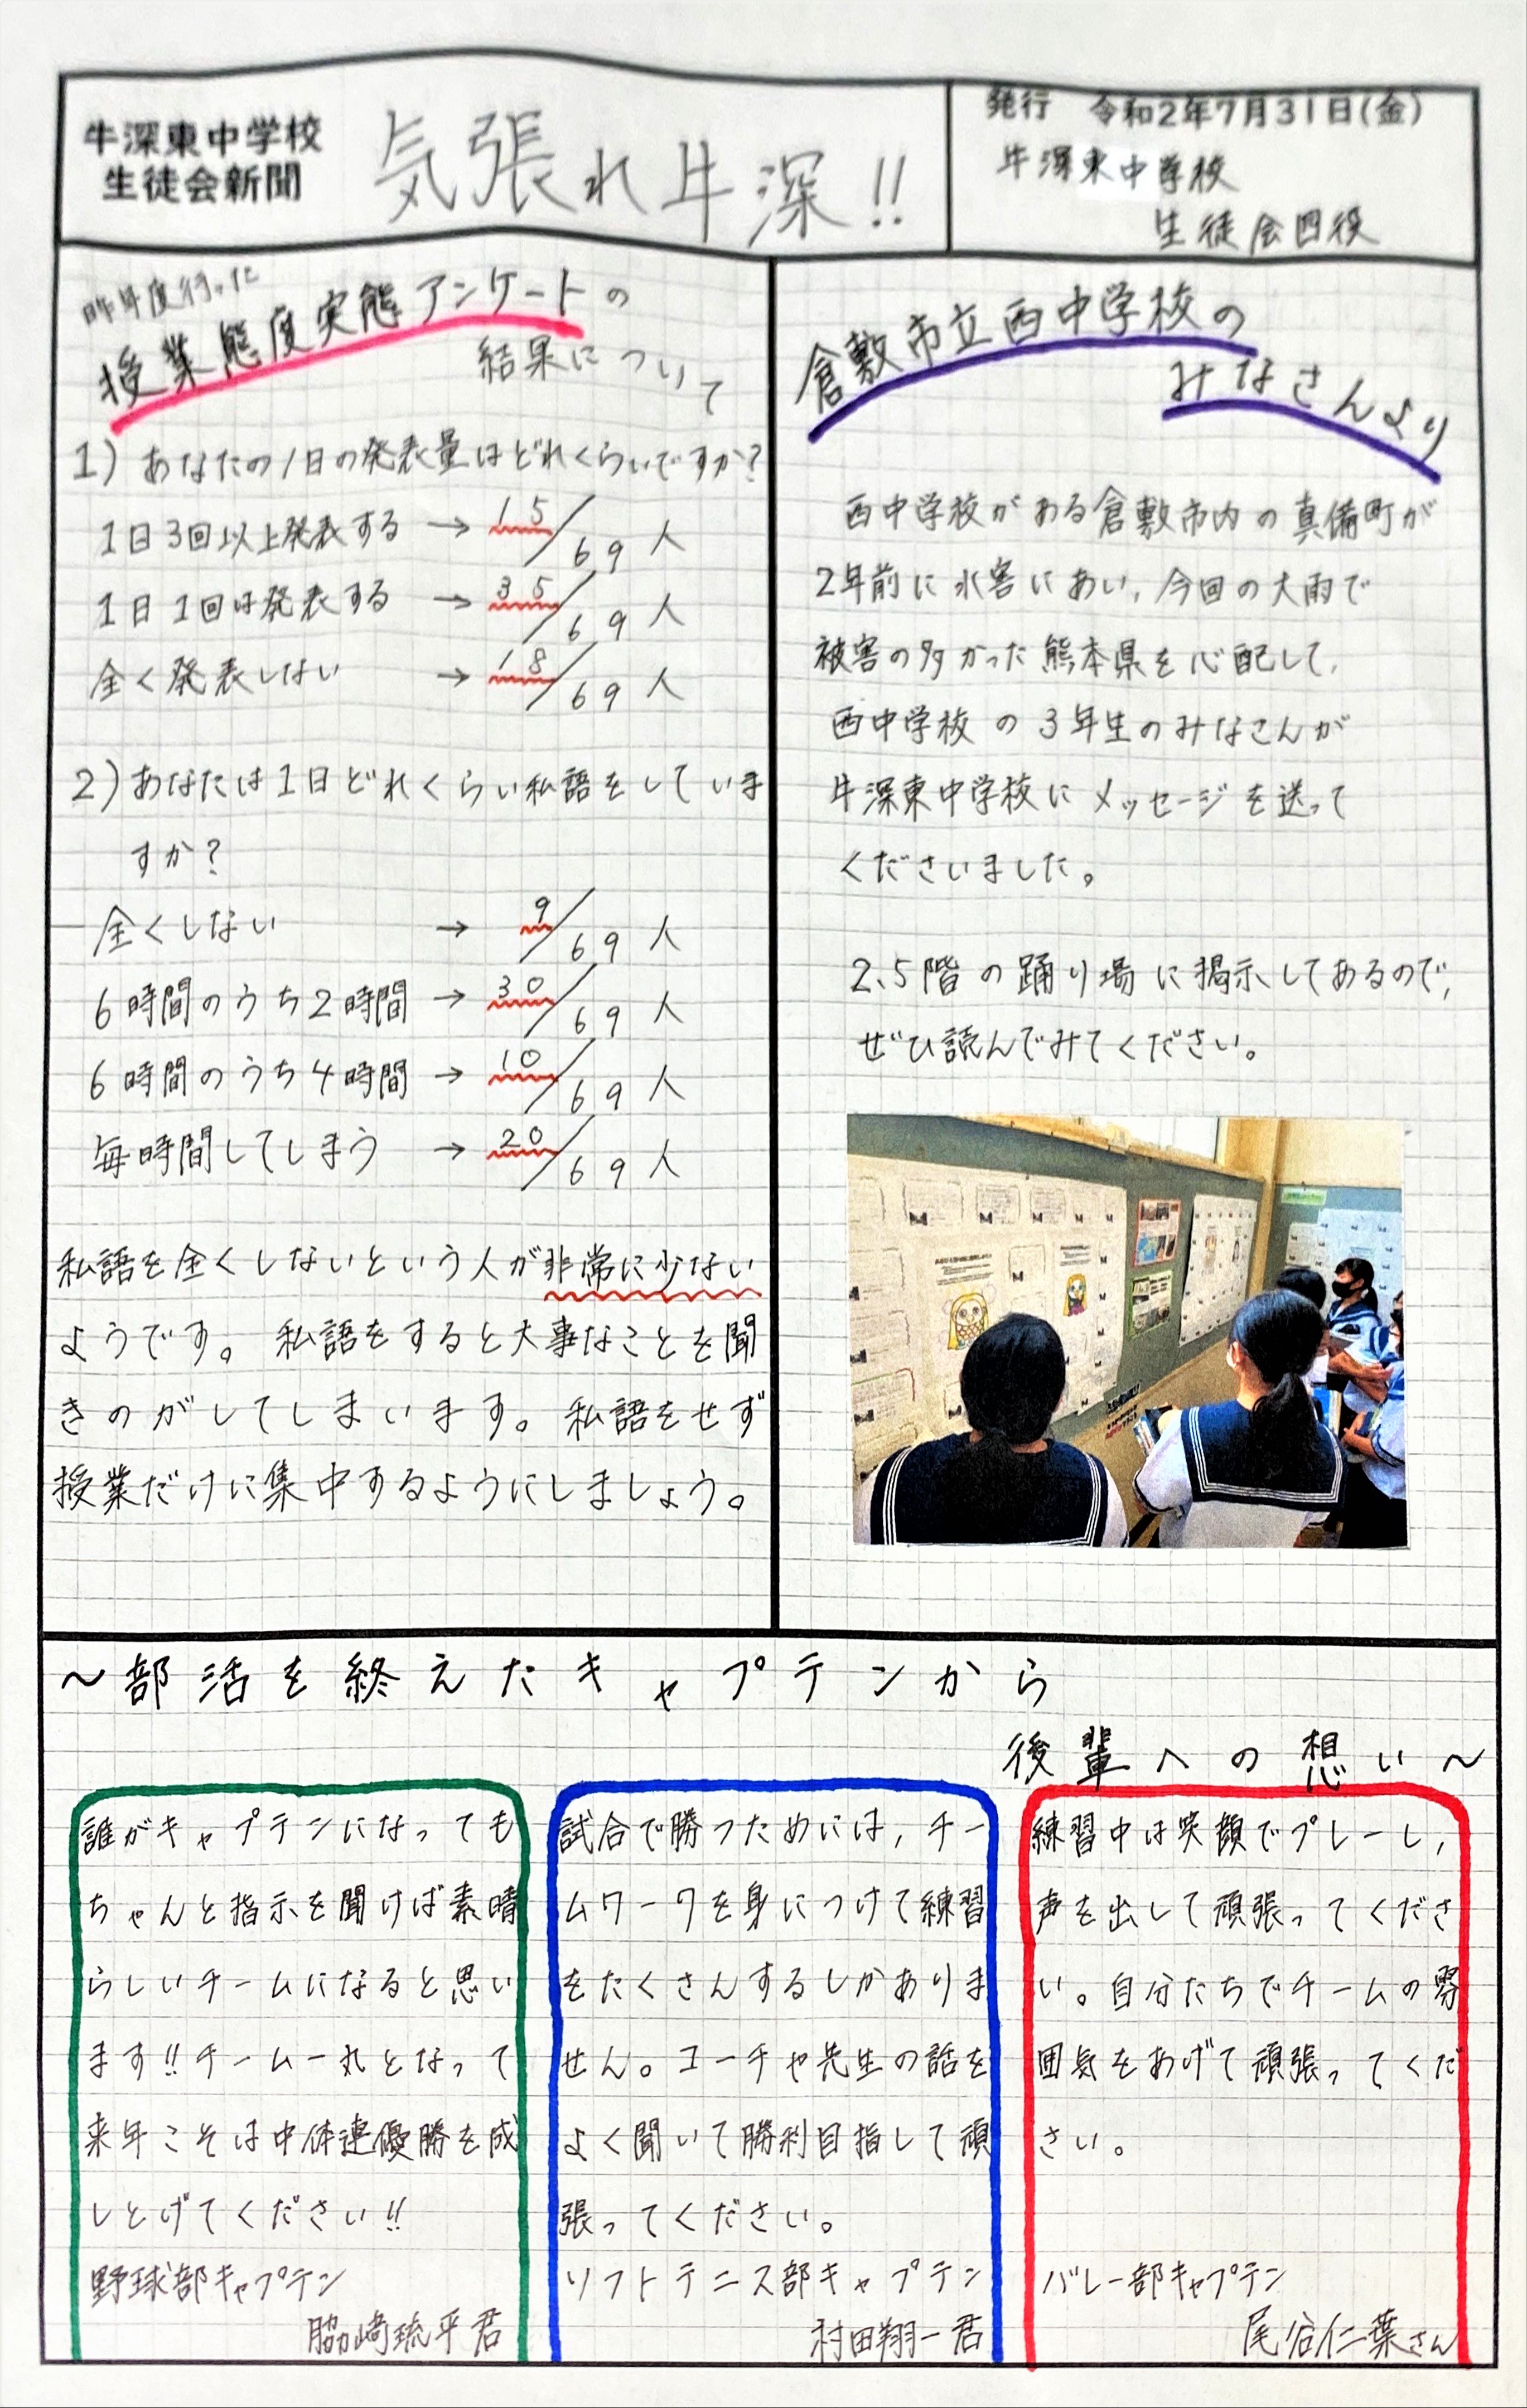 牛深東中学校
生徒会新聞
気張れ牛深!!
発行 令和2年7月31日(金)
牛深東中学校
生徒会四役
昨年度行った
授業態度実態アンケートの
結果について
1) あなたの1日の発表量はどれくらいですか?
1日3回以上発表する → 15/69人
1日1回は発表する → 35/69人
全く発表しない → 18/69人
2)あなたは1日どれくらい私語をしていま
すか?
全くしない → 9/69人
6時間のうち2時間 → 30/69人
6時間のうち4時間 → 10/69人
毎時間してしまう → 20/69人
私語を全くしないという人が非常に少ない
ようです。私語をすると大事なことを聞
きのがしてしまいます。私語をせず
授業だけに集中するようにしましょう。
倉敷市立西中学校の
みなさんより
西中学校がある倉敷市内の真備町が
2年前に水害にあい,今回の大雨で
被害の多かった熊本県を心配して,
西中学校の3年生のみなさんが
牛深東中学校にメッセージを送って
くださいました。
2.5階の踊り場に掲示してあるので,
ぜひ読んでみてください。
～部活を終えたキャプテンから
後輩への想い～
誰がキャプテンになっても
ちゃんと指示を聞けば素晴
らしいチームになると思い
ます!!チーム一丸となって
来年こそは中体連優勝を成
しとげてください!!
野球部キャプテン
脇崎琉平君
試合で勝つためには,チー
ムワークを身につけて練習
をたくさんするしかありま
せん。コーチや先生の話を
よく聞いて勝利目指して頑
張ってください。
ソフトテニス部キャプテン
村田翔一君
練習中は笑顔でプレーし,
声を出して頑張ってくださ
い。自分たちでチームの雰
囲気をあげて頑張ってくだ
さい。
バレー部キャプテン
尾谷仁葉さん